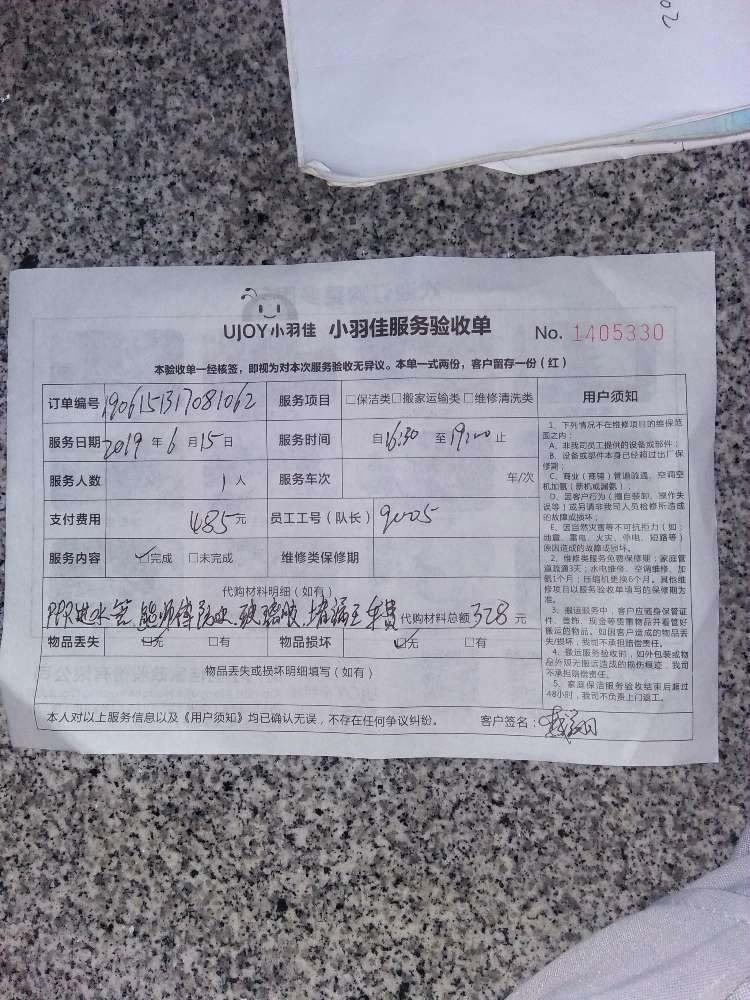 UJOY小羽佳 小羽佳服务验收单 No. 1405330
本验收单一经核签，即视为对本次服务验收无异议。本单一式两份，客户留存一份（红）
订单编号 1906151317081062 服务项目 □保洁类□搬家运输类□维修清洗类
服务日期 2019年6月15日 服务时间 自16:30至19:00止
服务人数 1人 服务车次 车/次
支付费用 485元 员工工号（队长） 9005
服务内容 □完成 □未完成 维修类保修期
代购材料明细（如有）
PPR进水管 玻璃胶 代购材料总额328元
物品丢失 □无 □有 物品损坏 □无 □有
物品丢失或损坏明细填写（如有）
本人对以上服务信息以及《用户须知》均已确认无误，不存在任何争议纠纷。 客户签名：
用户须知
1、下列情况不在维修项目的维保范
围之内：
A、非我司员工提供的设备或部件；
B、设备或部件本身已经超过出厂保
修期；
C、商业（商铺）管道疏通、空调空
机加氨（新机或漏氨）；
D、因客户行为（擅自装卸、操作失
误等）或另请非我司人员检修所造成
的故障或损坏；
E、因自然灾害等不可抗拒力（如：
地震、雷电、火灾、停电、短路等）
原因造成的故障或损坏。
2、维修类服务免费保修期：家庭管
道疏通3天；水电维修、空调维修、加
氨1个月；压缩机更换6个月。其他维
修项目以服务验收单填写的保修期为
准。
3、搬运服务中，客户应随身保管证
件、首饰、现金等贵重物品并看管好
搬运的物品。如因客户造成的物品丢
失/损坏，我司不承担赔偿责任。
4、搬运服务验收时，如外包装或物
品外观无搬运造成的损伤痕迹，我司
不承担赔偿责任。
5、家庭保洁服务验收结束后超过
48小时，我司不负责上门返工。